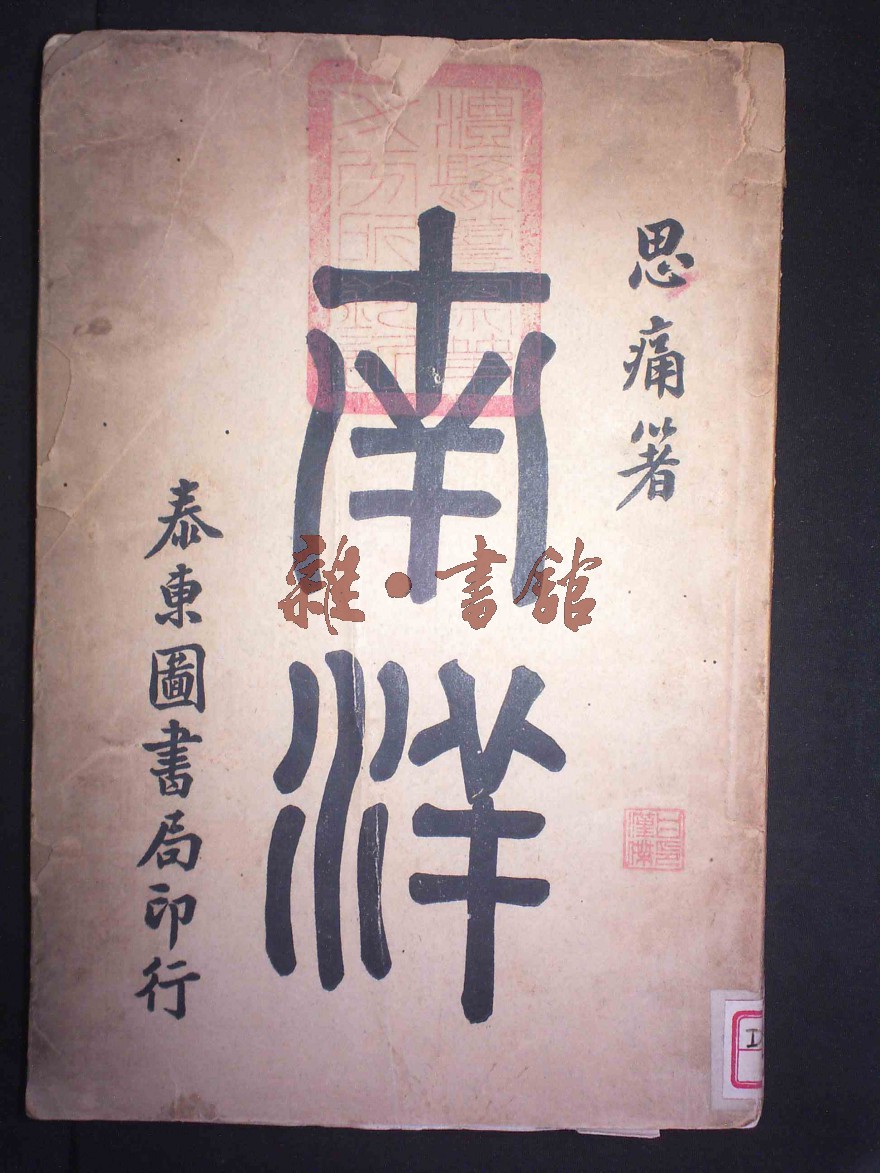 思痛著
南洋
泰東圖書局印行
雜·書館